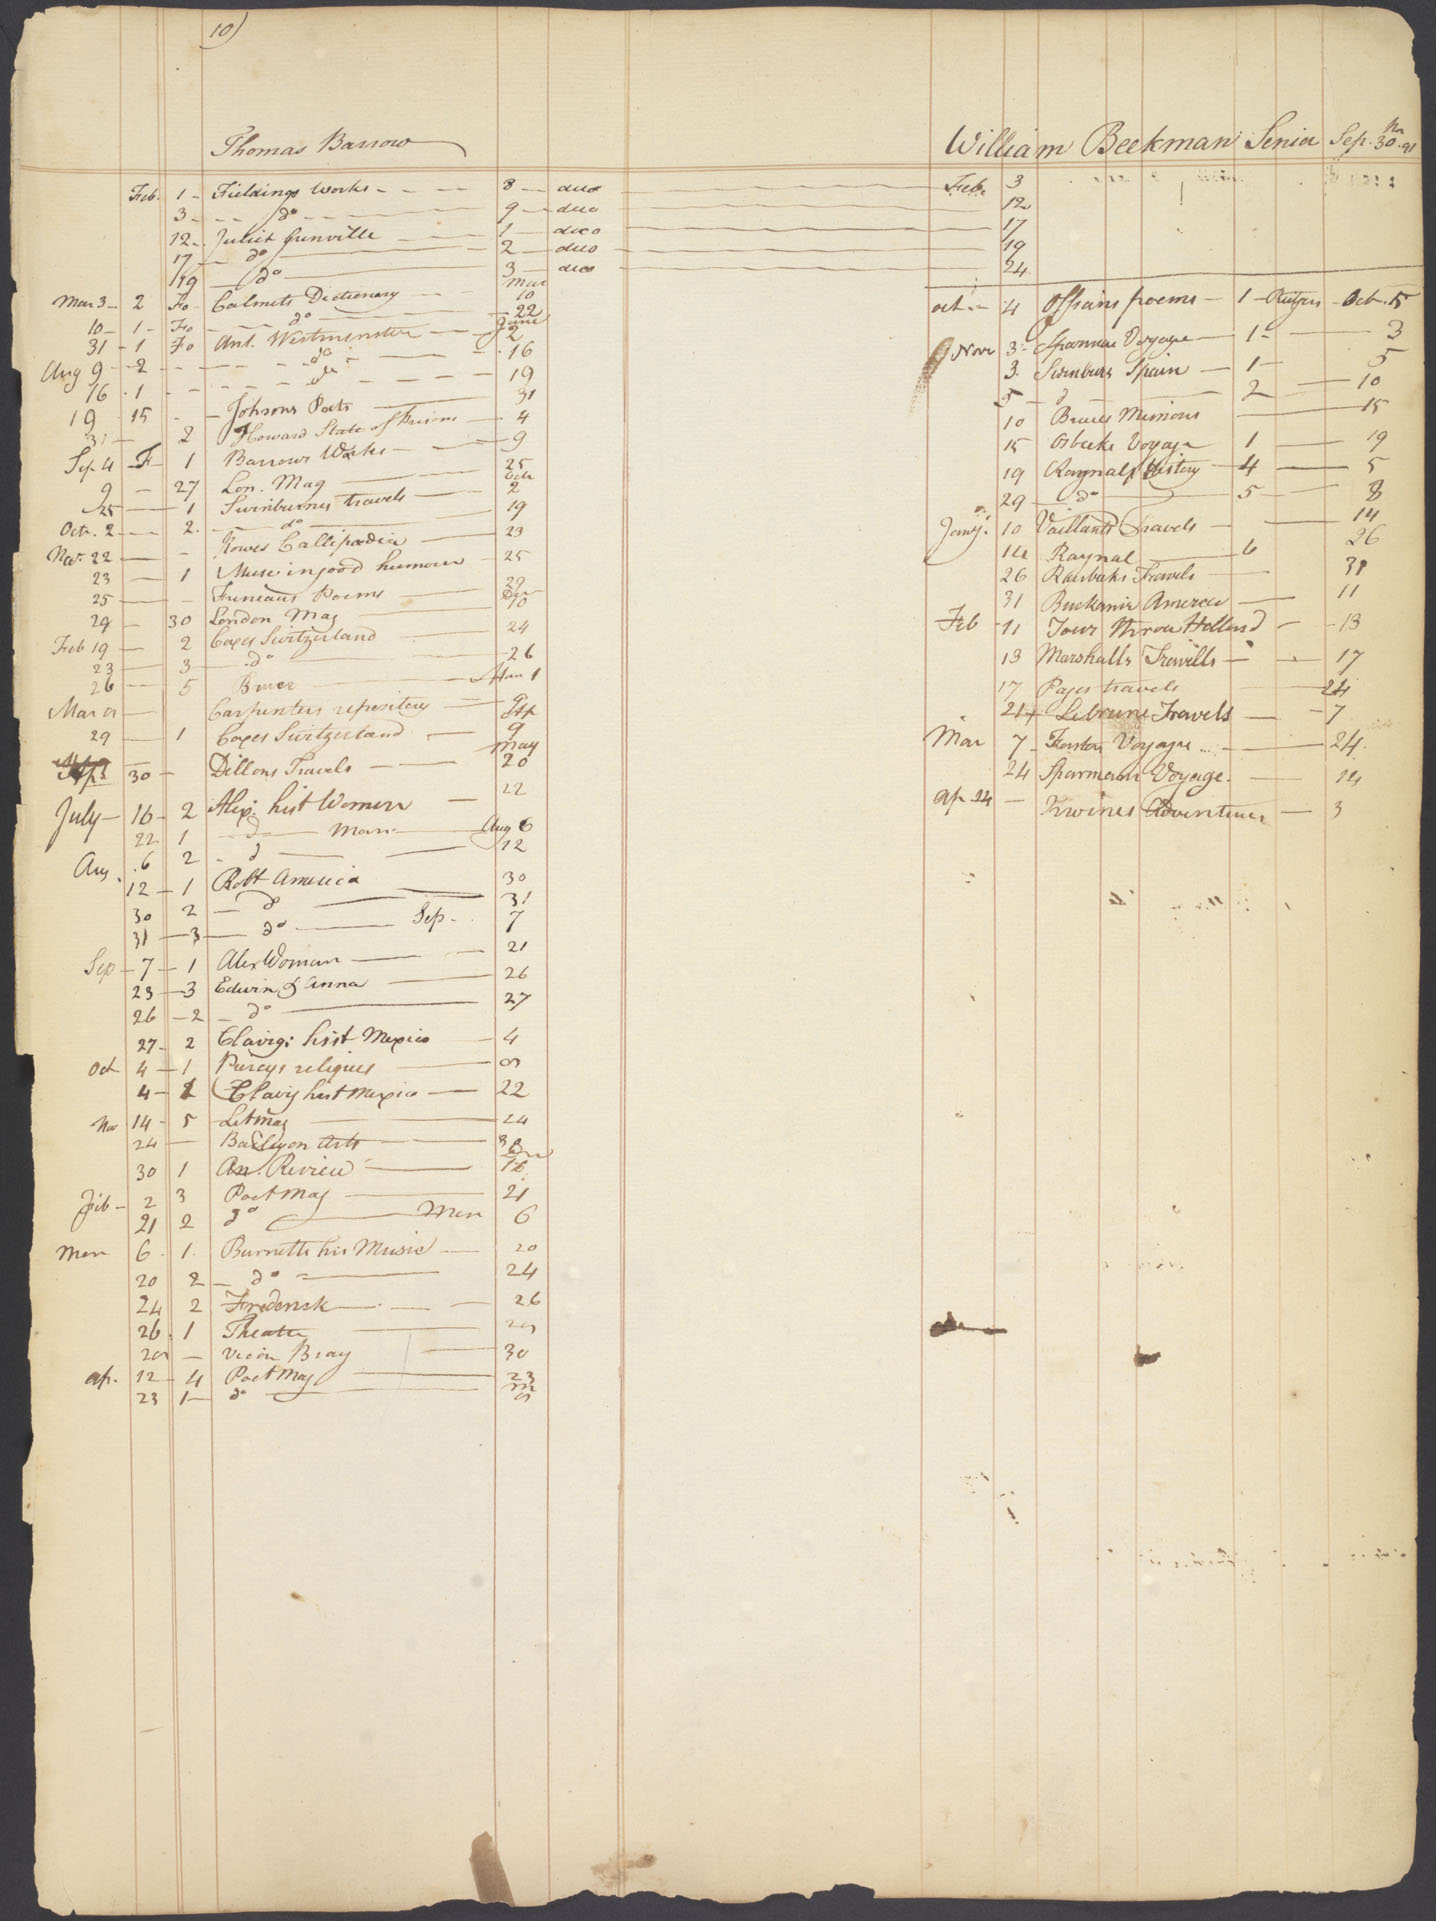 10)
Thomas Barrow
Feb. 1 - Fieldings Works - - - - 8 - duo - Feb. 3
3 - - - do - - - - 9 - duo - 12
12 - Juliet Grenville - 1 - duo - 17
17 - do - 2 - duo - 19
19 - do - 3 - duo - 24
Mar
Mar 3 - 2 Fo Calmets Dictionary - 10
10 - 1 - Fo - do - 22
June
31 - 1 Fo Ant. Westminster - 2
Aug 9 - 2 - - do - 16
16 - 1 - - do - 19
19 - 15 - Johsons Poets - 31
31 - 2 Howard State of Prisons - 4
Sep 4 - F - 1 Barrows Works - 9
9 - 27 Lon. Mag - 25
Octr
25 - 1 Swinburnes travels - 2
Octr. 2 - 2. - do - 19
Nov. 22 - - Rowes Callipædia - 23
23 - 1 Muse in good humour - 25
25 - - Freneaus Poems - 29
Der
29 - 30 London Mag 10
Feb 19 - 2 Coxes Switzerland - 24
23 - 3 - do - 26
26 - 5 Bruce - Mar 1
Mar 9 - Carpenters repository - 9
29 - 1 Coxes Switzerland - 9
May
30 - Dillons Travels - 20
July - 16 - 2 Alex: hist Women - 22
22 1 - do - Man - Aug 6
Aug. 6 2 - do - 12
12 - 1 Robt America - 30
30 2 - do - 31
31 - 3 - do - Sep - 7
Sep - 7 - 1 Alex Woman - 21
23 - 3 Edwin & Anna - 26
26 - 2 - do - 27
27 - 2 Clavig: hist Mexico - 4
Oct 4 - 1 Percys reliques - 9
4 - 1 Clavig hist mexico - 22
Nov 14 - 5 Lit Mag - 24
24 - Baileyon Arts - 30
30 1 An. Review - 16
Feb - 2 3 Poet Mag - 21
21 2 do - Mar 6
Mar 6 - 1 Burnetts his Music - 20
20 2 - do - 24
24 2 Frederick - 26
26 . 1 Theatre - 29
29 - Vicar Bray - 30
ap. 12 - 4 Poet Mag - 23
23 1 - do - 9
William Beekman Senior Sep. 30 - 91
oct - 4 Ossians poems - 1 - Rutgers - Octr. 5
Novr 3 - Sparman Voyage - 1 - 3
3. Swinburs Spain - 1 - 5
5 - do - 2 - 10
10 Bruces Memoirs - 15
15 Osbecks Voyage 1 - 19
19 Raynals History - 4 - 5
29 - do - 5 - 8
Jany. 10 Vaillants Travels - 14
14 Raynal - 6 26
26 Rausbaks Travels - 31
31 Buckanir America - 11
Feb - 11 Tour throu Holland - 13
13 Marshalls Travills - 17
17 Pages travels 24
21 + Lebrune Travels - 7
Mar 7 - Forster Voyage - 24
24 Sparmans Voyage. - 14
ap 24 - Irwines Adventures - 3